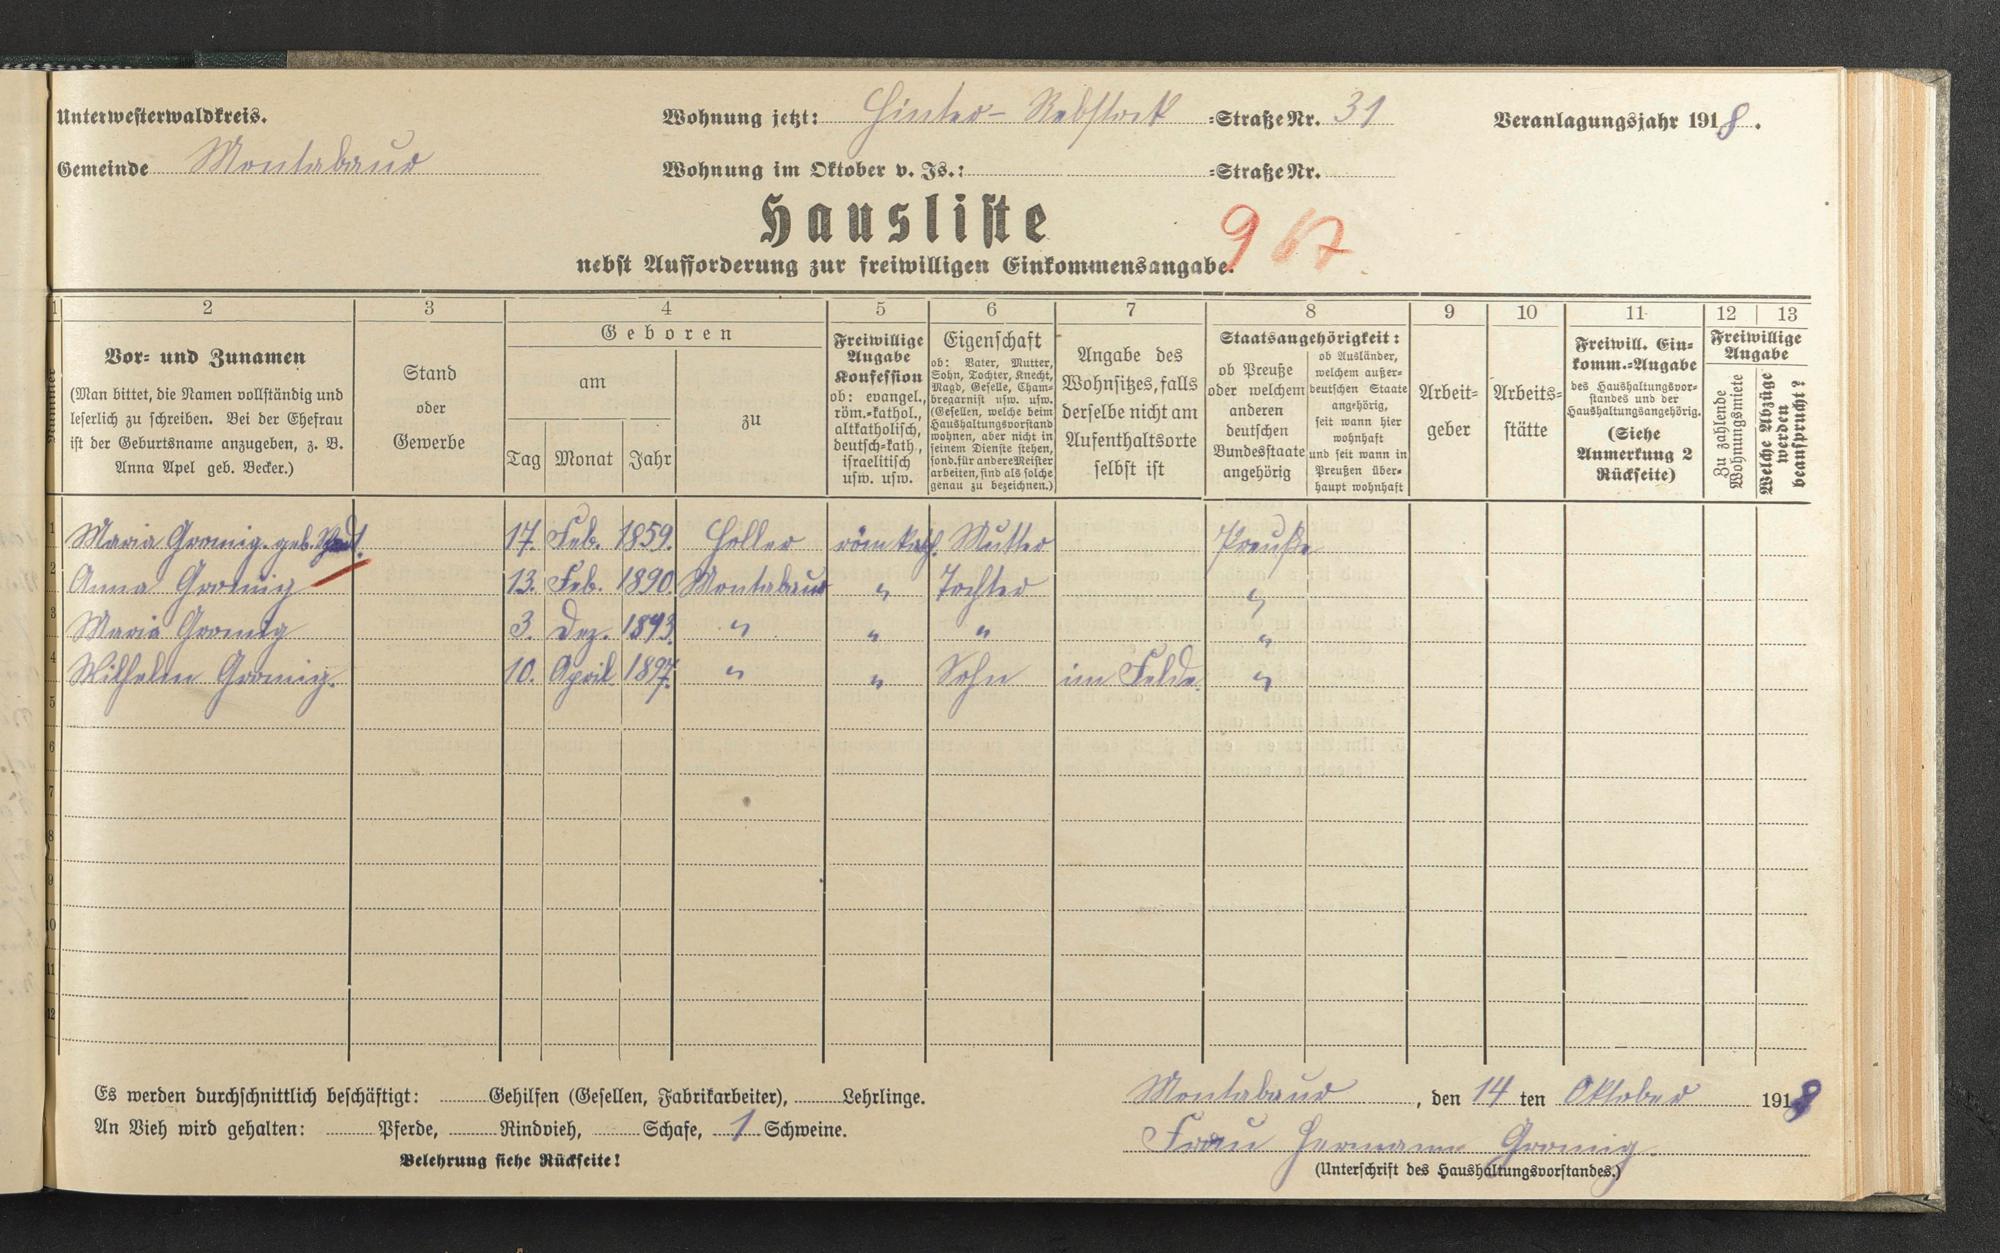 Unterwesterwaldkreis.
Wohnung jetzt: Hinter-Rebstock =Straße Nr. 31
Veranlagungsjahr 1918.
Gemeinde Montabaur
Wohnung im Oktober v. Js.: =Straße Nr.
Hausliste
967
nebst Aufforderung zur freiwilligen Einkommensangabe.
1 2 3 4 5 6 7 8 9 10 11 12 13
Nummer
Vor= und Zunamen
(Man bittet, die Namen vollständig und
leserlich zu schreiben. Bei der Ehefrau
ist der Geburtsname anzugeben, z. B.
Anna Apel geb. Becker.)
Stand
oder
Gewerbe
Geboren
am
Tag Monat Jahr
zu
Freiwillige
Angabe
Konfession
ob: evangel.,
röm.=kathol.,
altkatholisch,
deutsch=kath.,
israelitisch
usw. usw.
Eigenschaft
ob: Vater, Mutter,
Sohn, Tochter, Knecht,
Magd, Geselle, Cham=
bregarnist usw. usw.
(Gesellen, welche beim
Haushaltungsvorstand
wohnen, aber nicht in
seinem Dienste stehen,
sond. für andere Meister
arbeiten, sind als solche
genau zu bezeichnen.)
Angabe des
Wohnsitzes, falls
derselbe nicht am
Aufenthaltsorte
selbst ist
Staatsangehörigkeit:
ob Preuße
oder welchem
anderen
deutschen
Bundesstaate
angehörig
ob Ausländer,
welchem außer=
deutschen Staate
angehörig,
seit wann hier
wohnhaft
und seit wann in
Preußen über=
haupt wohnhaft
Arbeit=
geber
Arbeits=
stätte
Freiwill. Ein=
komm.=Angabe
des Haushaltungsvor=
standes und der
Haushaltungsangehörig.
(Siehe
Anmerkung 2
Rückseite)
Freiwillige
Angabe
Zu zahlende
Wohnungsmiete
Welche Abzüge
werden
beansprucht?
1 Maria Gromig. geb. 17. Feb. 1859. Holler röm kath. Mutter Preuße
2 Anna Gromig 13. Feb. 1890. Montabaur " Tochter "
3 Maria Gromig 3. Dez. 1893. " " " "
4 Wilhelm Gromig. 10. April 1897. " " Sohn im Felde. "
5
6
7
8
9
10
11
12
Es werden durchschnittlich beschäftigt: Gehilfen (Gesellen, Fabrikarbeiter), Lehrlinge.
Montabaur, den 14 ten Oktober 1918
An Vieh wird gehalten: Pferde, Rindvieh, Schafe, 1 Schweine.
Frau Hermann Gromig.
Belehrung siehe Rückseite!
(Unterschrift des Haushaltungsvorstandes.)